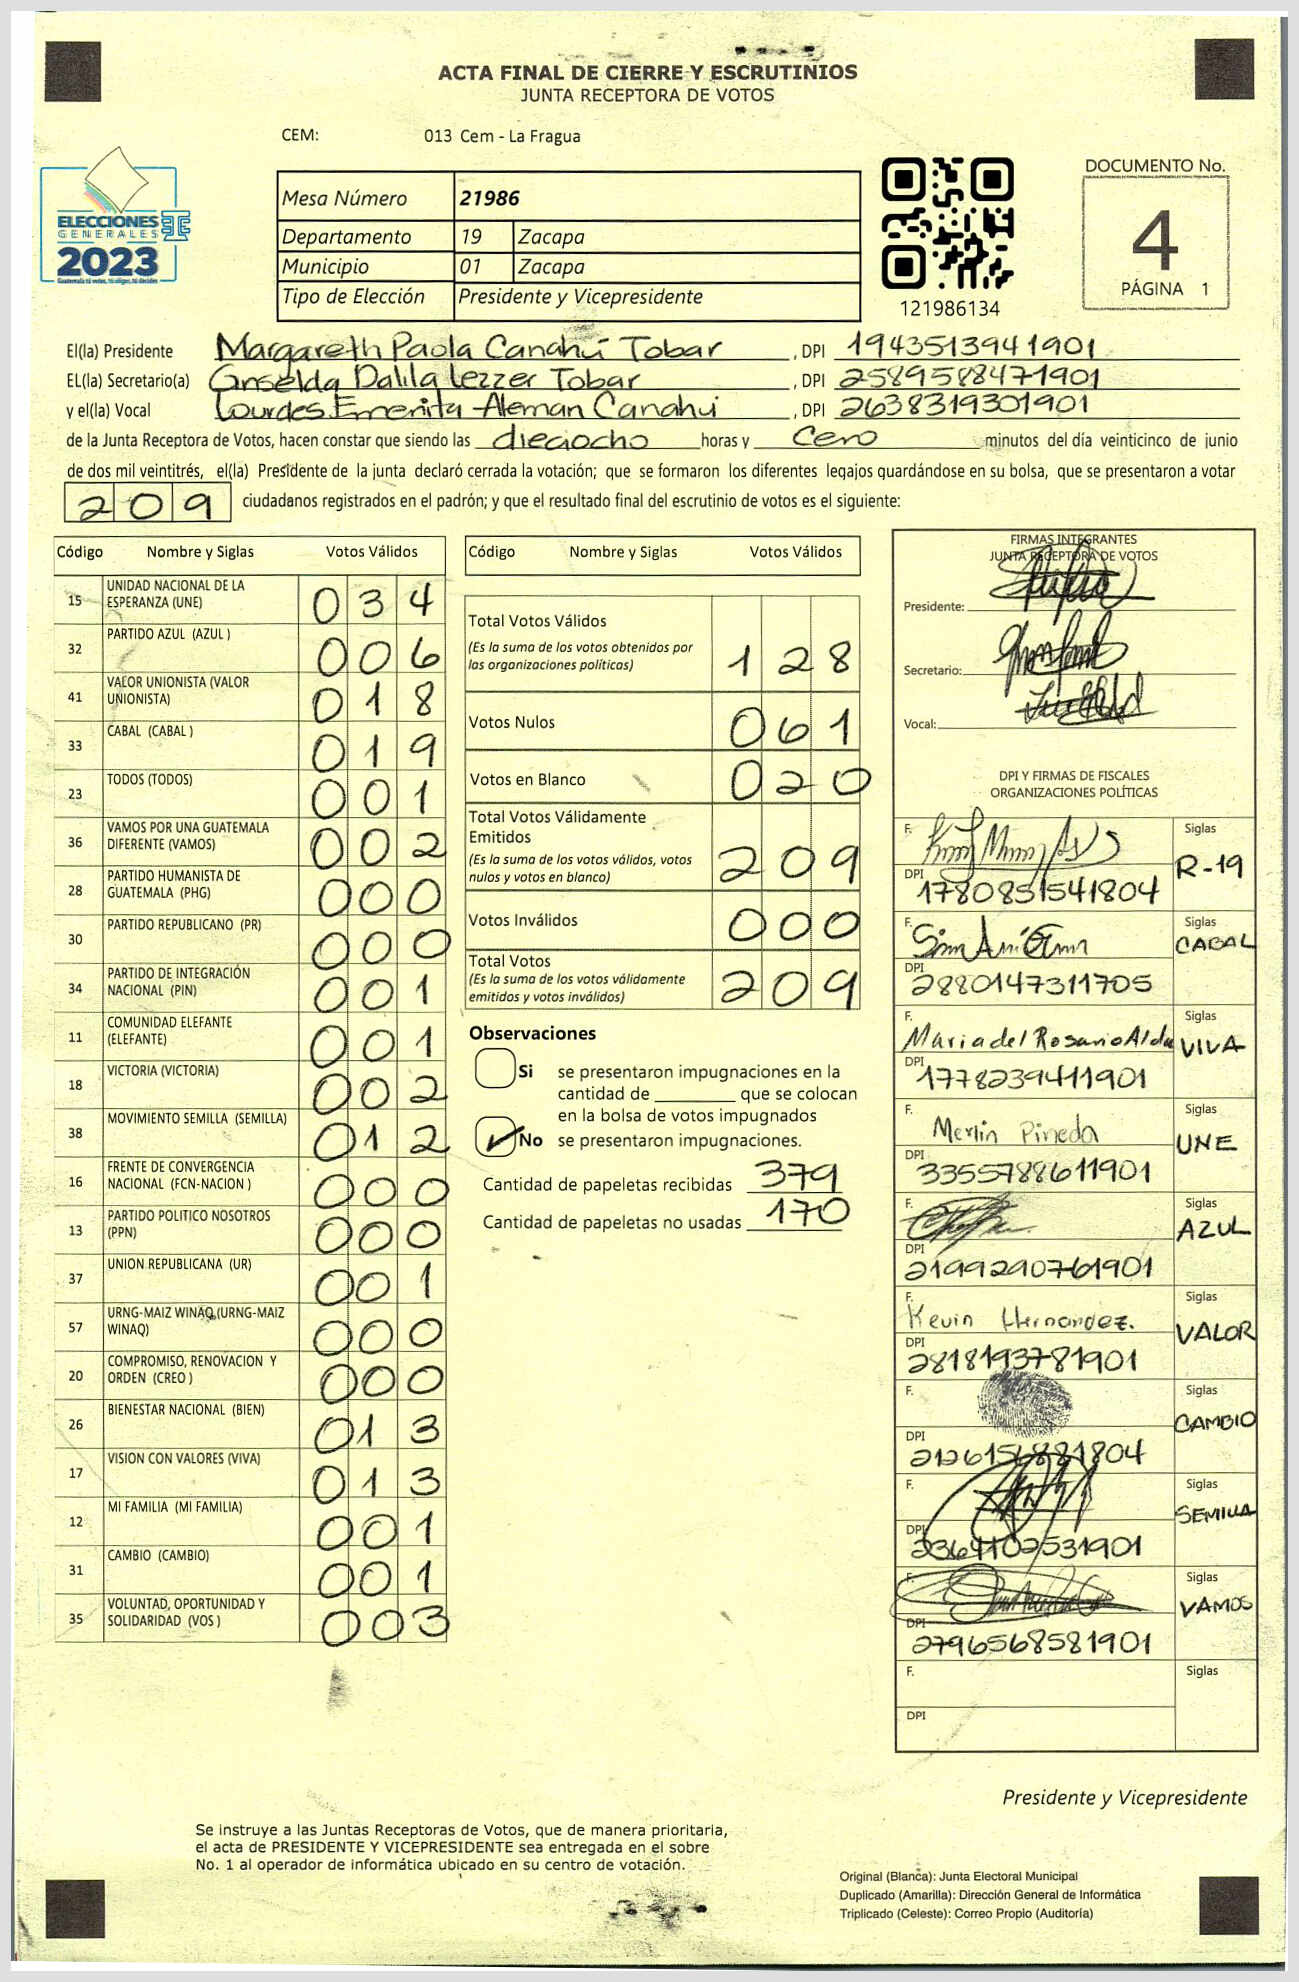 ACTA FINAL DE CIERRE Y ESCRUTINIOS
JUNTA RECEPTORA DE VOTOS
CEM: 013 Cem - La Fragua
ELECCIONES
GENERALES
2023
Mesa Número 21986
Departamento 19 Zacapa
Municipio 01 Zacapa
Tipo de Elección Presidente y Vicepresidente
121986134
DOCUMENTO No.
4
PÁGINA 1
El(la) Presidente Margareth Paola Canahuí Tobar , DPI 1943513941901
EL(la) Secretario(a) Griselda Dalila Lezzer Tobar , DPI 2589588471901
y el(la) Vocal Lourdes Emerita Aleman Canahui , DPI 2638319301901
de la Junta Receptora de Votos, hacen constar que siendo las dieciocho horas y Cero minutos del día veinticinco de junio
de dos mil veintitrés, el(la) Presidente de la junta declaró cerrada la votación; que se formaron los diferentes legajos quardándose en su bolsa, que se presentaron a votar
209 ciudadanos registrados en el padrón; y que el resultado final del escrutinio de votos es el siguiente:
Código Nombre y Siglas Votos Válidos
15 UNIDAD NACIONAL DE LA ESPERANZA (UNE) 034
32 PARTIDO AZUL (AZUL ) 006
41 VALOR UNIONISTA (VALOR UNIONISTA) 018
33 CABAL (CABAL ) 019
23 TODOS (TODOS) 001
36 VAMOS POR UNA GUATEMALA DIFERENTE (VAMOS) 002
28 PARTIDO HUMANISTA DE GUATEMALA (PHG) 000
30 PARTIDO REPUBLICANO (PR) 000
34 PARTIDO DE INTEGRACIÓN NACIONAL (PIN) 001
11 COMUNIDAD ELEFANTE (ELEFANTE) 001
18 VICTORIA (VICTORIA) 002
38 MOVIMIENTO SEMILLA (SEMILLA) 012
16 FRENTE DE CONVERGENCIA NACIONAL (FCN-NACION ) 000
13 PARTIDO POLITICO NOSOTROS (PPN) 000
37 UNION REPUBLICANA (UR) 001
57 URNG-MAIZ WINAQ (URNG-MAIZ WINAQ) 000
20 COMPROMISO, RENOVACION Y ORDEN (CREO ) 000
26 BIENESTAR NACIONAL (BIEN) 013
17 VISION CON VALORES (VIVA) 013
12 MI FAMILIA (MI FAMILIA) 001
31 CAMBIO (CAMBIO) 001
35 VOLUNTAD, OPORTUNIDAD Y SOLIDARIDAD (VOS ) 003
Código Nombre y Siglas Votos Válidos
Total Votos Válidos 128
(Es la suma de los votos obtenidos por
las organizaciones políticas)
Votos Nulos 061
Votos en Blanco 020
Total Votos Válidamente
Emitidos 209
(Es la suma de los votos válidos, votos
nulos y votos en blanco)
Votos Inválidos 000
Total Votos 209
(Es la suma de los votos válidamente
emitidos y votos inválidos)
Observaciones
Si se presentaron impugnaciones en la
cantidad de ________ que se colocan
en la bolsa de votos impugnados
No se presentaron impugnaciones.
Cantidad de papeletas recibidas 379
Cantidad de papeletas no usadas 170
FIRMAS INTEGRANTES
JUNTA RECEPTORA DE VOTOS
Presidente:
Secretario:
Vocal:
DPI Y FIRMAS DE FISCALES
ORGANIZACIONES POLÍTICAS
F. Siglas
DPI 1780851541804 R-19
F. Siglas
DPI 2880147311705 CABAL
F. Maria del Rosario Aldu Siglas
DPI 1778239411901 VIVA
F. Merlin Pineda Siglas
DPI 3355788611901 UNE
F. Siglas
DPI 2199290761901 AZUL
F. Kevin Hernandez. Siglas
DPI 2818193781901 VALOR
F. Siglas
DPI 2126156881804 CAMBIO
F. Siglas
DPI 2364102531901 SEMILLA
F. Siglas
DPI 2796568581901 VAMOS
F. Siglas
DPI
Presidente y Vicepresidente
Se instruye a las Juntas Receptoras de Votos, que de manera prioritaria,
el acta de PRESIDENTE Y VICEPRESIDENTE sea entregada en el sobre
No. 1 al operador de informática ubicado en su centro de votación.
Original (Blanca): Junta Electoral Municipal
Duplicado (Amarilla): Dirección General de Informática
Triplicado (Celeste): Correo Propio (Auditoría)